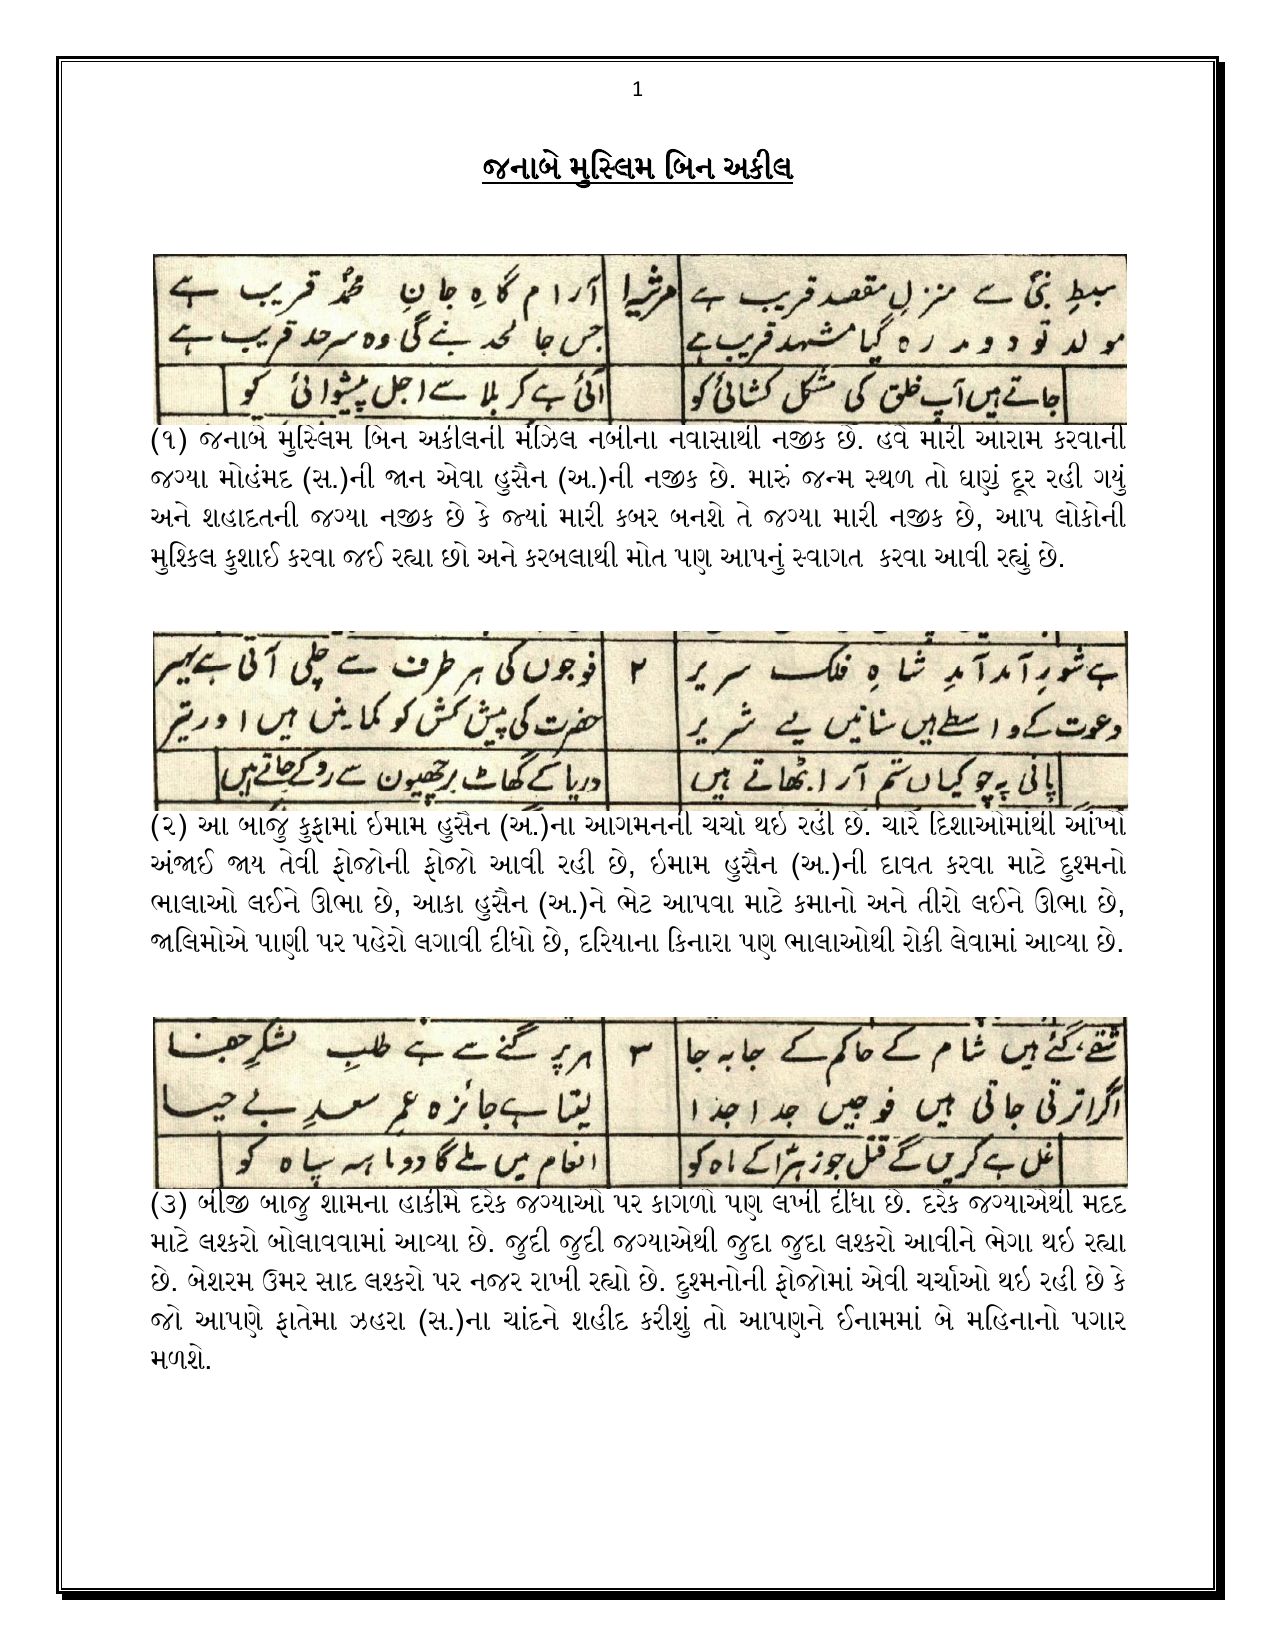 1
જનાબે મુસ્લિમ બિન અકીલ
سبطِ نبیؐ سے منزلِ مقصد قریب ہے مرثیہ ۱ آرام گاہِ جانِ محمدؐ قریب ہے
مولد تو دور رہ گیا مشہد قریب ہے جس جا لحد بنے گی وہ سرحد قریب ہے
جاتے ہیں آپ خلق کی مشکل کشائی کو آئی ہے کربلا سے اجل پیشوائی کو
(૧) જનાબે મુસ્લિમ બિન અકીલની મંઝિલ નબીના નવાસાથી નજીક છે. હવે મારી આરામ કરવાની
જગ્યા મોહંમદ (સ.)ની જાન એવા હુસૈન (અ.)ની નજીક છે. મારું જન્મ સ્થળ તો ઘણું દૂર રહી ગયું
અને શહાદતની જગ્યા નજીક છે કે જ્યાં મારી કબર બનશે તે જગ્યા મારી નજીક છે, આપ લોકોની
મુશ્કિલ કુશાઈ કરવા જઈ રહ્યા છો અને કરબલાથી મોત પણ આપનું સ્વાગત કરવા આવી રહ્યું છે.
ہے شورِ آمد آمدِ شاہِ فلک سریر ۲ فوجوں کی ہر طرف سے چلی آتی ہے بہیر
دعوت کے واسطے ہیں سنانیں لیے شریر حضرت کی پیش کش کو کمانیں ہیں اور تیر
پانی پہ چوکیاں ستم آرا بٹھاتے ہیں دریا کے گھاٹ برچھیون سے روکے جاتے ہیں
(૨) આ બાજુ કુફામાં ઇમામ હુસૈન (અ.)ના આગમનની ચર્ચા થઇ રહી છે. ચારે દિશાઓમાંથી આંખો
અંજાઈ જાય તેવી ફોજોની ફોજો આવી રહી છે, ઇમામ હુસૈન (અ.)ની દાવત કરવા માટે દુશ્મનો
ભાલાઓ લઈને ઊભા છે, આકા હુસૈન (અ.)ને ભેટ આપવા માટે કમાનો અને તીરો લઈને ઊભા છે,
જાલિમોએ પાણી પર પહેરો લગાવી દીધો છે, દરિયાના કિનારા પણ ભાલાઓથી રોકી લેવામાં આવ્યા છે.
شقے گئے ہیں شام کے حاکم کے جا بہ جا ۳ ہر پرگنے سے ہے طلبِ لشکرِ جفا
آکر اترتی جاتی ہیں فوجیں جدا جدا لیتا ہے جائزہ عمرِ سعدِ بے حیا
غل ہے کریں گے قتل جو زہراؑ کے ماہ کو انعام میں ملے گا دو ماہہ سپاہ کو
(૩) બીજી બાજુ શામના હાકીમે દરેક જગ્યાઓ પર કાગળો પણ લખી દીધા છે. દરેક જગ્યાએથી મદદ
માટે લશ્કરો બોલાવવામાં આવ્યા છે. જુદી જુદી જગ્યાએથી જુદા જુદા લશ્કરો આવીને ભેગા થઇ રહ્યા
છે. બેશરમ ઉમર સાદ લશ્કરો પર નજર રાખી રહ્યો છે. દુશ્મનોની ફોજોમાં એવી ચર્ચાઓ થઇ રહી છે કે
જો આપણે ફાતેમા ઝહરા (સ.)ના ચાંદને શહીદ કરીશું તો આપણને ઈનામમાં બે મહિનાનો પગાર
મળશે.